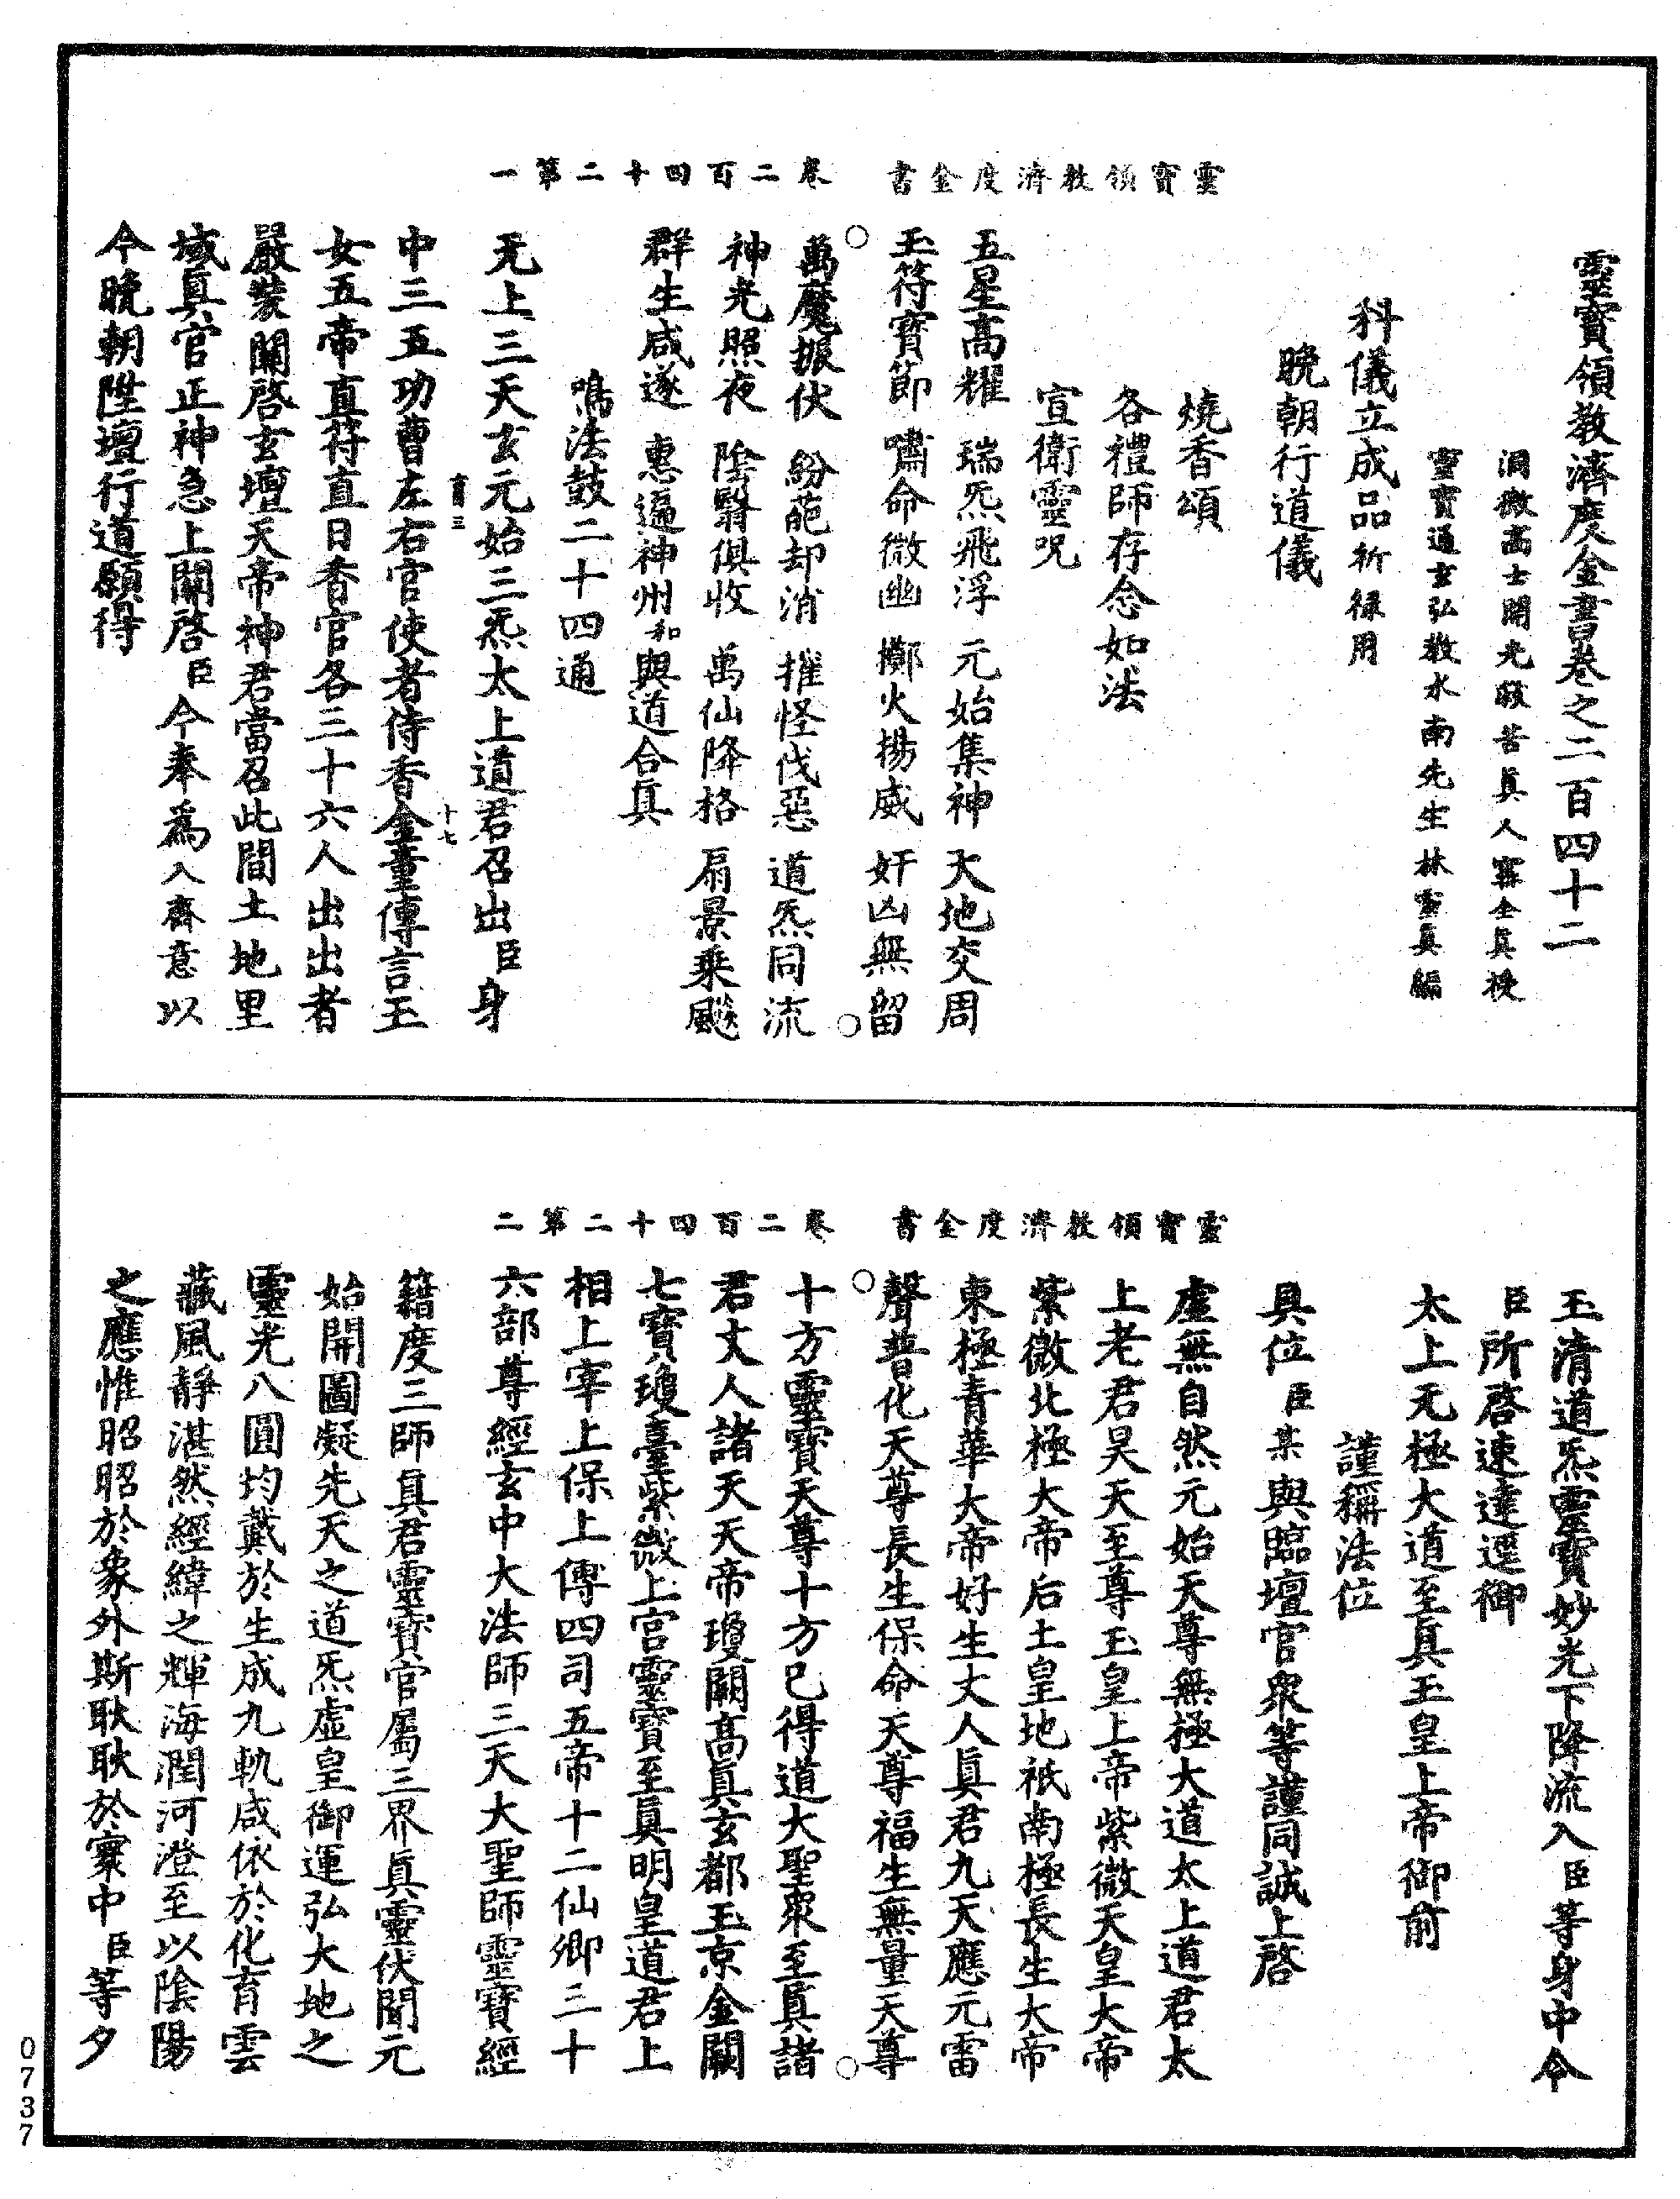 靈寶領教濟度金書卷之二百四十二
洞微高士開光救苦眞人甯全眞授
靈寶通玄弘教水南先生林靈眞編
科儀立成品祈禄用
晚朝行道儀
燒香頌
各禮師存念如法
宣衛靈呪
五星高耀 瑞炁飛浮 元始集神 天地交周
玉符寶節 嘯命徵幽 擲火揚威 奸凶無留
靈寶領教濟度金書 卷二百四十二第一
萬魔振伏 紛葩却消 摧怪伐惡 道炁同流
神光照夜 陰翳俱收 萬仙降格 扇景乘飈
群生咸遂 惠遍神州和與道合眞
鳴法鼓二十四通
无上三天玄元始三炁太上道君召出臣身
育三 十七
中三五功曹左右官使者侍香金童傳言玉
女五帝直符直日香官各三十六人出出者
嚴裝關啓玄壇天帝神君當召此間土地里
域眞官正神急上關啓臣今奉爲入齋意以
今晚朝陞壇行道願得
玉清道炁靈寶妙光下降流入臣等身中令
臣所啓速達逕御
太上无極大道至眞玉皇上帝御前
謹稱法位
具位臣某與臨壇官衆等謹同誠上啓
虛無自然元始天尊無極大道太上道君太
上老君昊天至尊玉皇上帝紫微天皇大帝
紫微北極大帝后土皇地祇南極長生大帝
東極青華大帝好生丈人眞君九天應元雷
聲普化天尊長生保命天尊福生無量天尊
靈寶領教濟度金書 卷二百四十二第二
十方靈寶天尊十方已得道大聖衆至眞諸
君丈人諸天天帝瓊闕高眞玄都玉京金闕
七寶瓊臺紫微上宫靈寶至眞明皇道君上
相上宰上保上傅四司五帝十二仙卿三十
六部尊經玄中大法師三天大聖師靈寶經
籍度三師眞君靈寶官屬三界眞靈伏聞元
始開圖凝先天之道炁虛皇御運弘大地之
靈光八圓均戴於生成九軌咸依於化育雲
藏風靜湛然經緯之輝海潤河澄至以陰陽
之應惟昭昭於象外斯耿耿於寰中臣等夕
0737